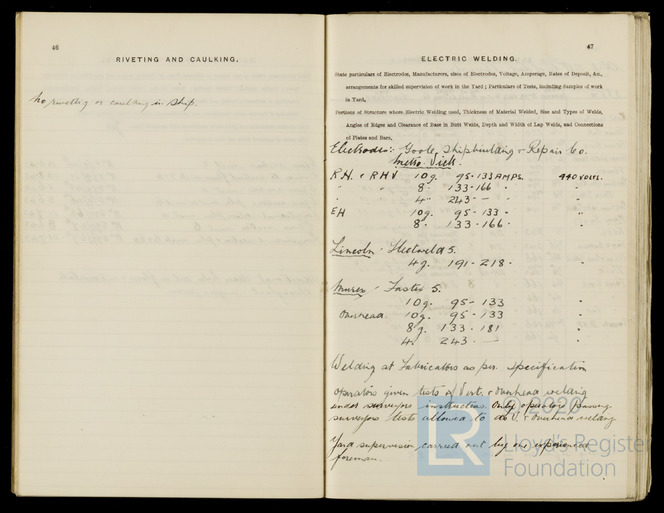 46
RIVETING AND CAULKING.
No rivetting or caulking in Ship.
47
ELECTRIC WELDING.
State particulars of Electrodes, Manufacturers, sizes of Electrodes, Voltage, Amperage, Rates of Deposit, &c.,
arrangements for skilled supervision of work in the Yard; Particulars of Tests, including Samples of work
in Yard,
Portions of Structure where Electric Welding used, Thickness of Material Welded, Size and Types of Welds,
Angles of Edges and Clearance of Base in Butt Welds, Depth and Width of Lap Welds, and Connections
of Plates and Bars,
Electrodes:- Goole Shipbuilding & Repair Co.
Metro. Vick.
R.H. & RHV 10g. 95-133 AMPS. 440 volts.
" " 8" 133-166 " "
" " 4" 243 - - " "
EH 10g. 95-133 " "
8" 133-166 " "
Lincoln - Fleetweld 5.
4g. 191-218 " "
Murex - Fastex 5.
10g. 95-133 "
Overhead 10g. 95-133 "
8g. 133-181 "
4" 243 - "
Welding at Fabricators as per specification
Operators given tests of Vert. & Overhead welding
under surveyors instructions. Only operators passing
surveyors tests allowed to do V. & Overhead welding
Yard supervision carried out by one experienced
foreman.
© 2020
LR
Lloyd's Register
Foundation